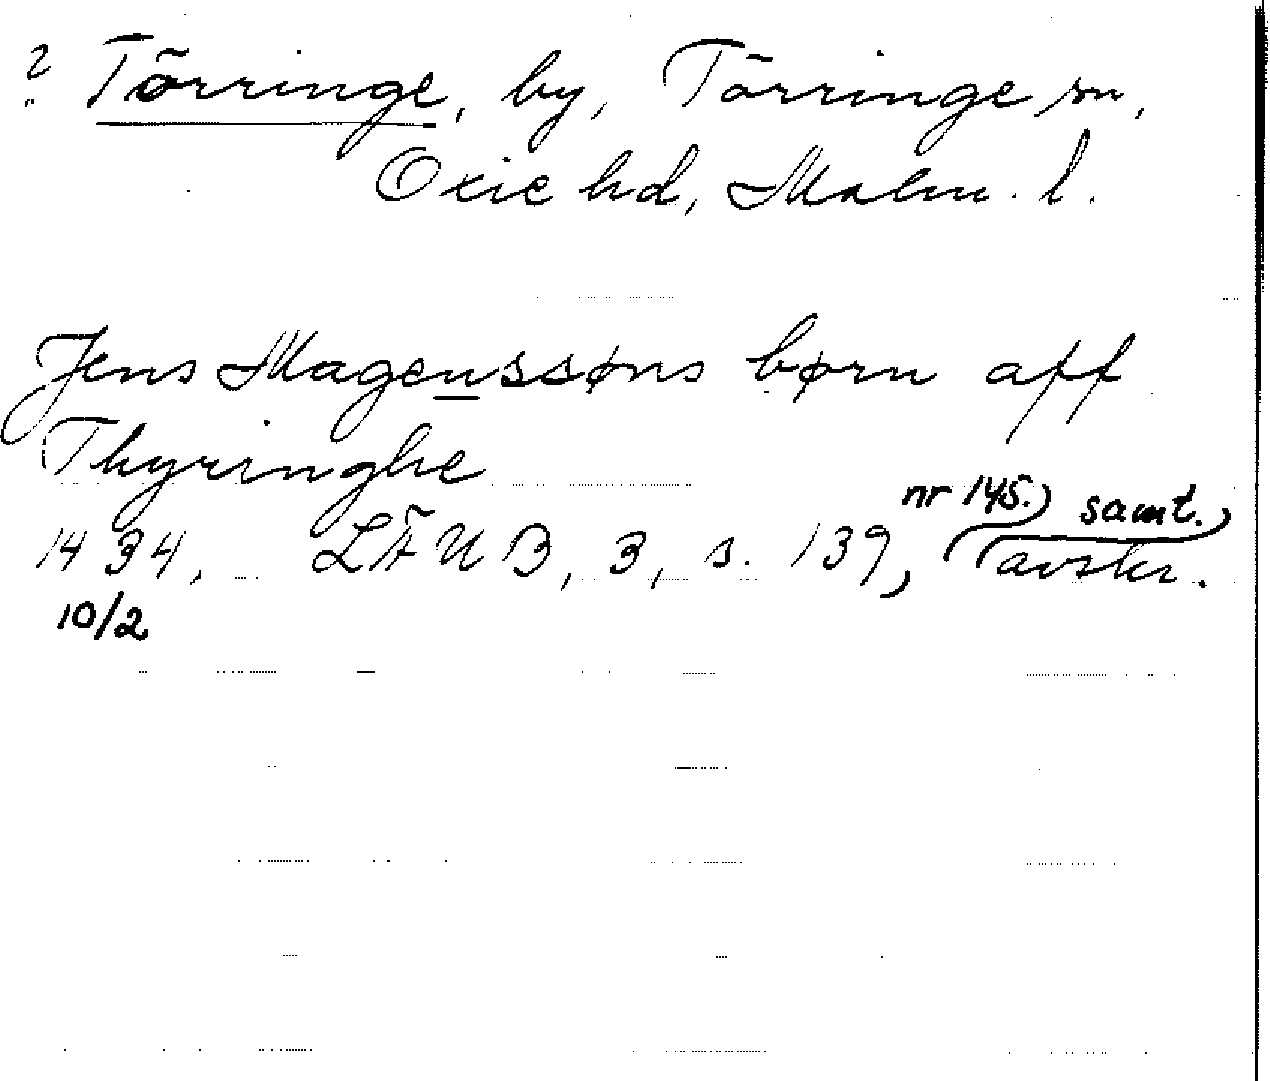 ? Törringe, by, Törringe sn,
Oxie hd, Malm. l.
Jens Magenssøns børn aff
Thyringhe
1434, LÄUB, 3, s. 139, nr 145. samt. avskr.
10/2